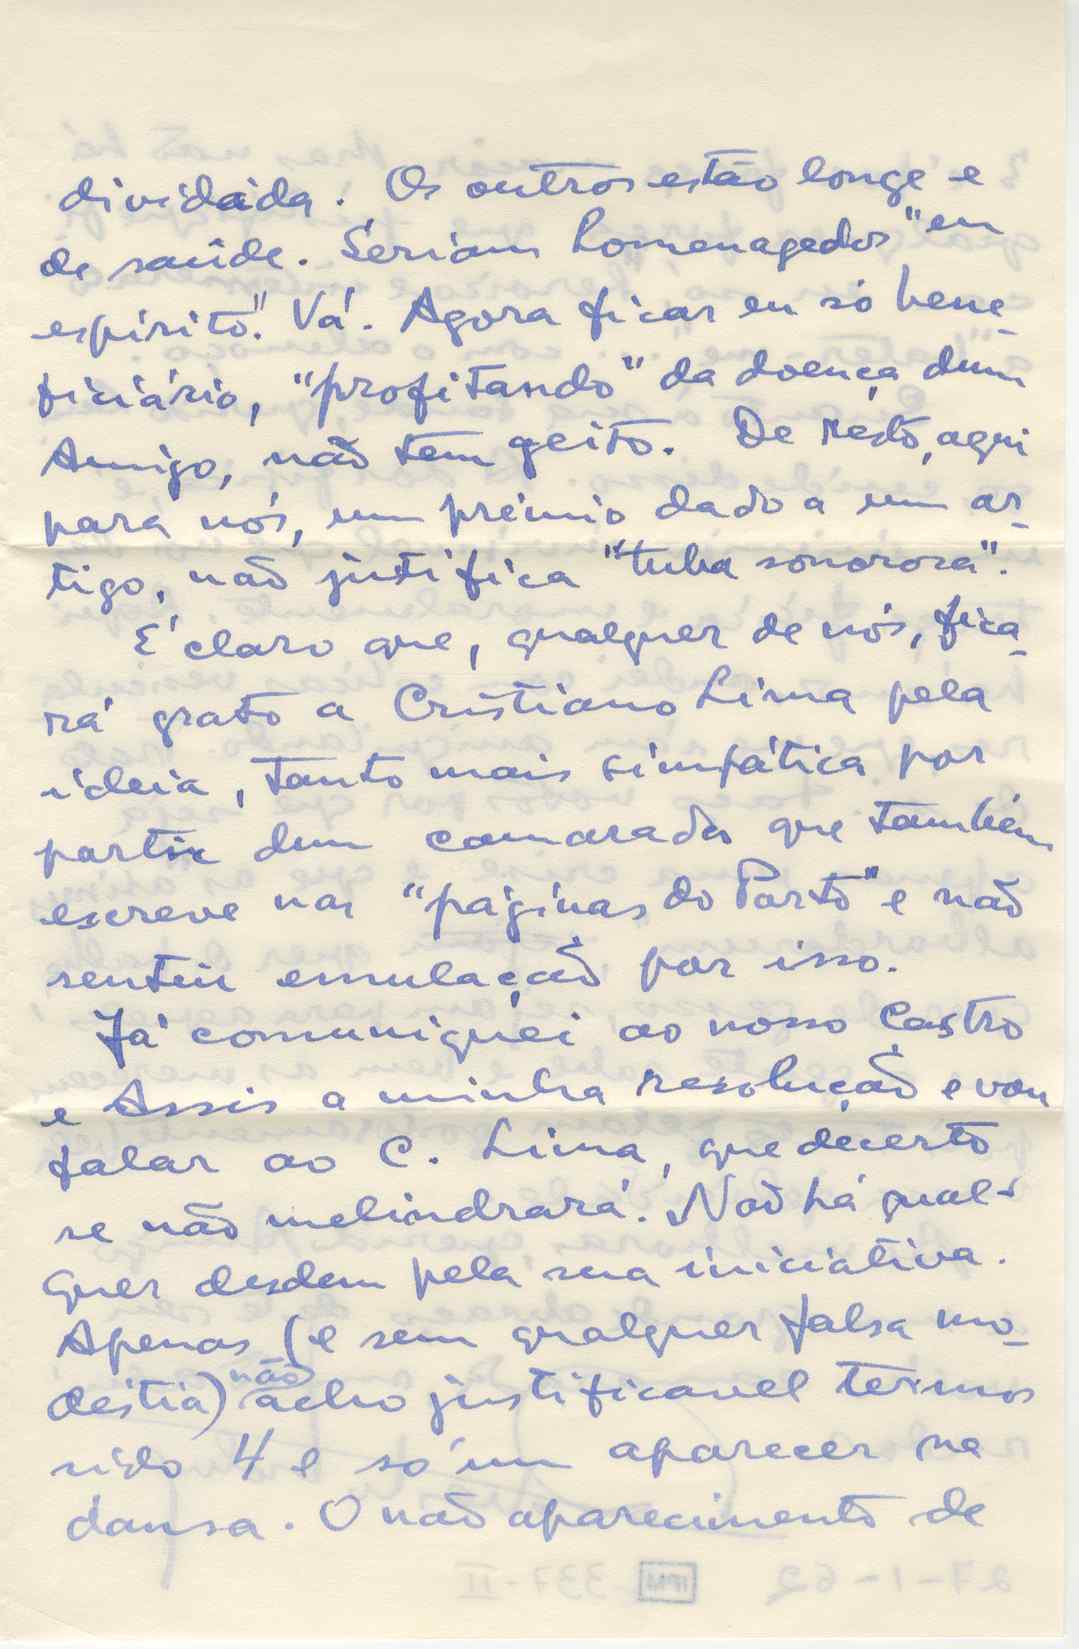 dividida. Os outros estão longe e
de saúde. Seriam homenagedos "em
espírito". Vá. Agora ficar eu só bene-
ficiário, "profitando" da doença dum
Amigo, não tem geito. De resto, aqui
para nós, um prémio dado a um ar-
tigo, não justifica "tuba sonorosa".
É claro que, qualquer de nós, fica-
rá grato a Cristiano Lima pela
ideia, tanto mais simpática por
partir dum camarada que também
escreve nas "páginas do Porto" e não
sentiu emulação por isso.
Já comuniquei ao nosso Castro
e Assis a minha resolução e vou
falar ao C. Lima, que décerto
se não melindrará. Não há qual-
quer desdem pela sua iniciativa.
Apenas (e sem qualquer falsa mo-
déstia) não acho justificavel termos
sido 4 e só um aparecer na
dansa. O não aparecimento de
27-1-62 337-II